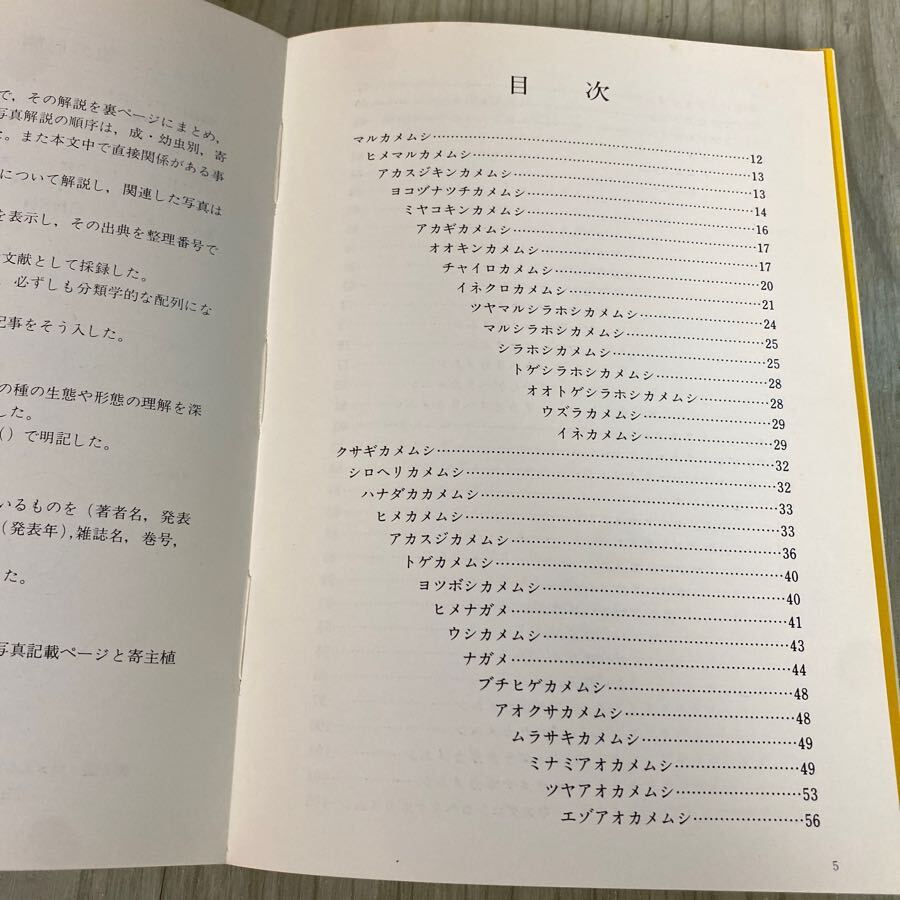 で，その解説を裏ページにまとめ，
写真解説の順序は，成・幼虫別，寄
。また本文中で直接関係がある事
について解説し，関連した写真は
を表示し，その出典を整理番号で
文献として採録した。
，必ずしも分類学的な配列にな
記事をそう入した。
の種の生態や形態の理解を深
した。
()で明記した。
いるものを（著者名，発表
(発表年),雑誌名，巻号，
た。
写真記載ページと寄主植
目次
マルカメムシ……12
ヒメマルカメムシ……13
アカスジキンカメムシ……13
ヨコヅナツチカメムシ……14
ミヤコキンカメムシ……16
アカギカメムシ……17
オオキンカメムシ……17
チャイロカメムシ……20
イネクロカメムシ……21
ツヤマルシラホシカメムシ……24
マルシラホシカメムシ……25
シラホシカメムシ……25
トゲシラホシカメムシ……28
オオトゲシラホシカメムシ……28
ウズラカメムシ……29
イネカメムシ……29
クサギカメムシ……32
シロヘリカメムシ……32
ハナダカカメムシ……33
ヒメカメムシ……33
アカスジカメムシ……36
トゲカメムシ……40
ヨツボシカメムシ……40
ヒメナガメ……41
ウシカメムシ……43
ナガメ……44
ブチヒゲカメムシ……48
アオクサカメムシ……48
ムラサキカメムシ……49
ミナミアオカメムシ……49
ツヤアオカメムシ……53
エゾアオカメムシ……56
5